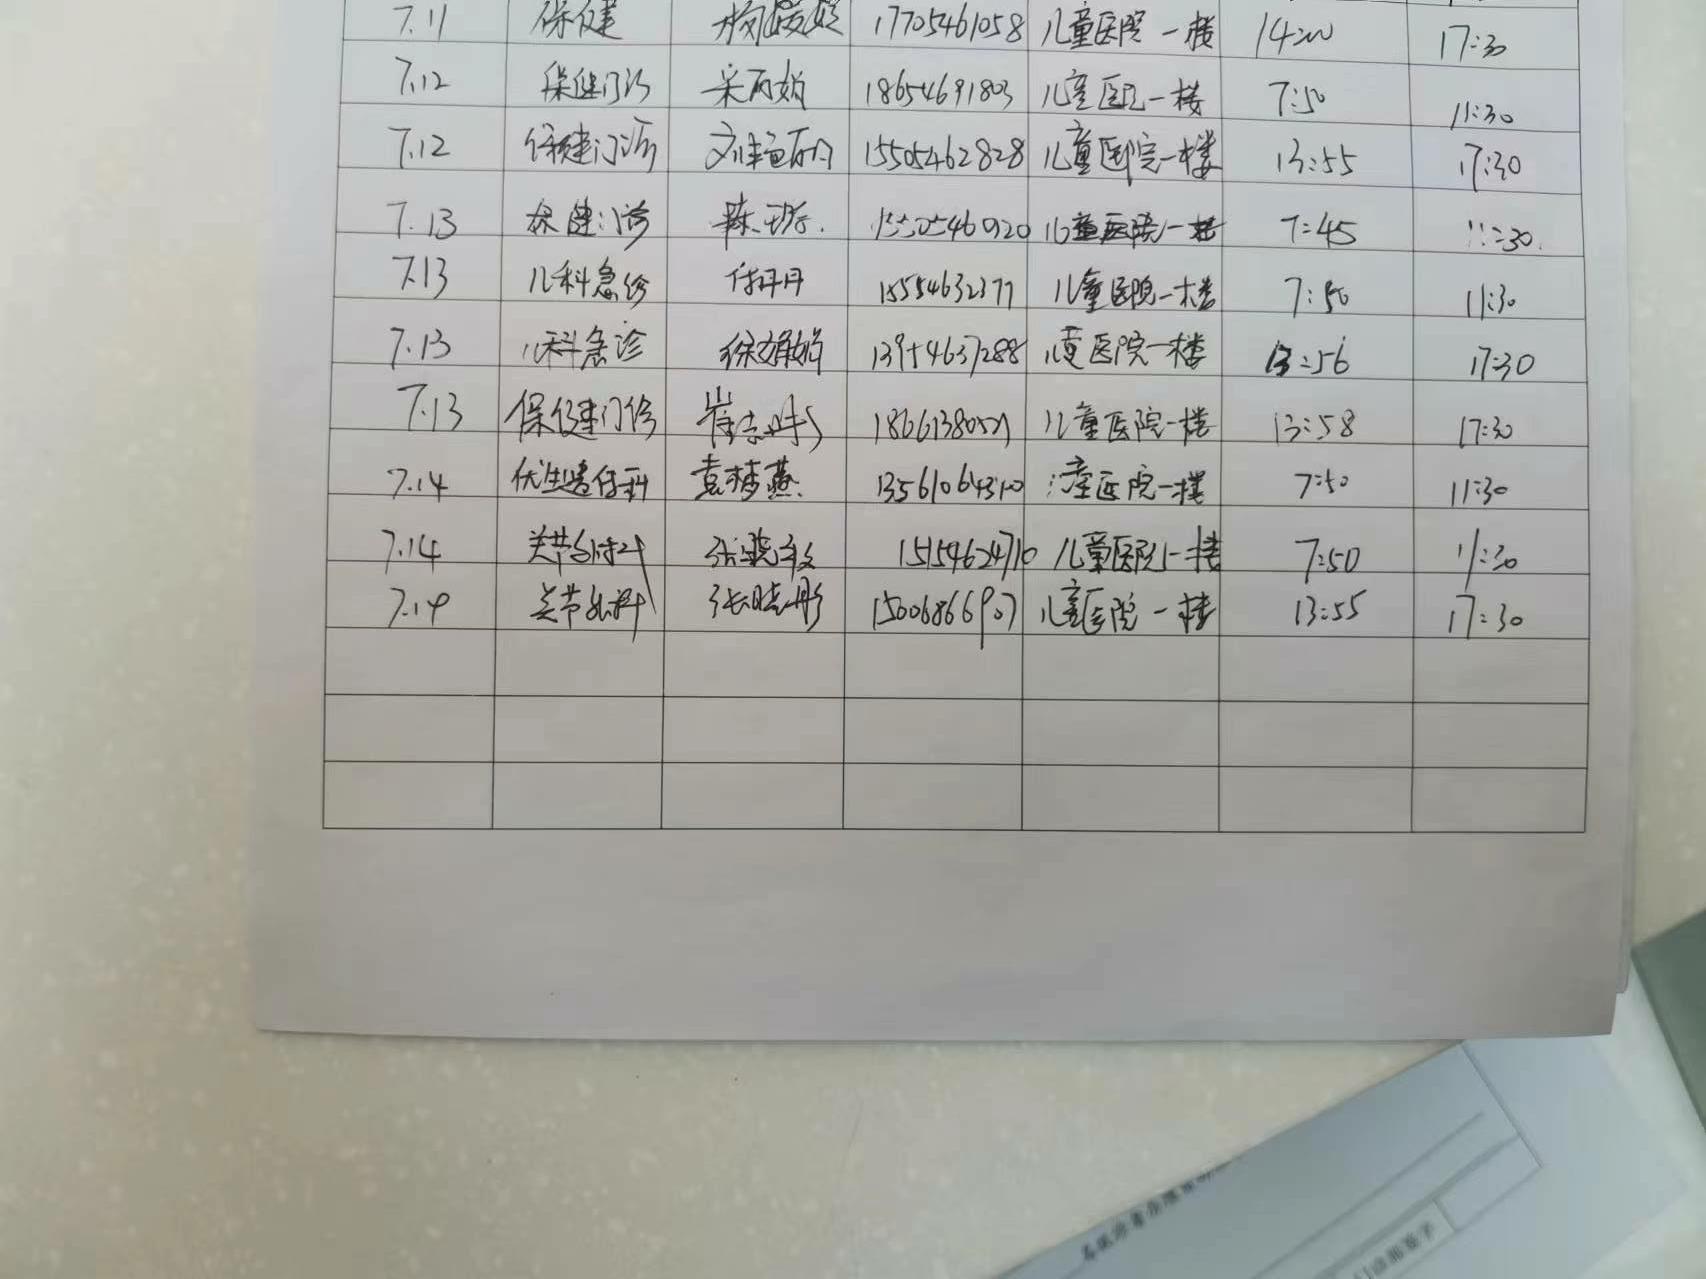 7.11 保健 17705461058 儿童医院一楼 14:00 17:30
7.12 保健门诊 18654691803 儿童医院一楼 7:50 11:30
7.12 保健门诊 15505462828 儿童医院一楼 13:55 17:30
7.13 保健门诊 陈 儿童医院一楼 7:45 11:30
7.13 儿科急诊 付丹丹 15554632377 儿童医院一楼 7:50 11:30
7.13 儿科急诊 徐娟娟 13954637288 儿童医院一楼 13:56 17:30
7.13 保健门诊 崔 儿童医院一楼 13:58 17:30
7.14 优生遗传科 袁梦燕 儿童医院一楼 7:50 11:30
7.14 关节外科 张晓 15154624710 儿童医院一楼 7:50 11:30
7.14 关节外科 张晓彤 15006866907 儿童医院一楼 13:55 17:30